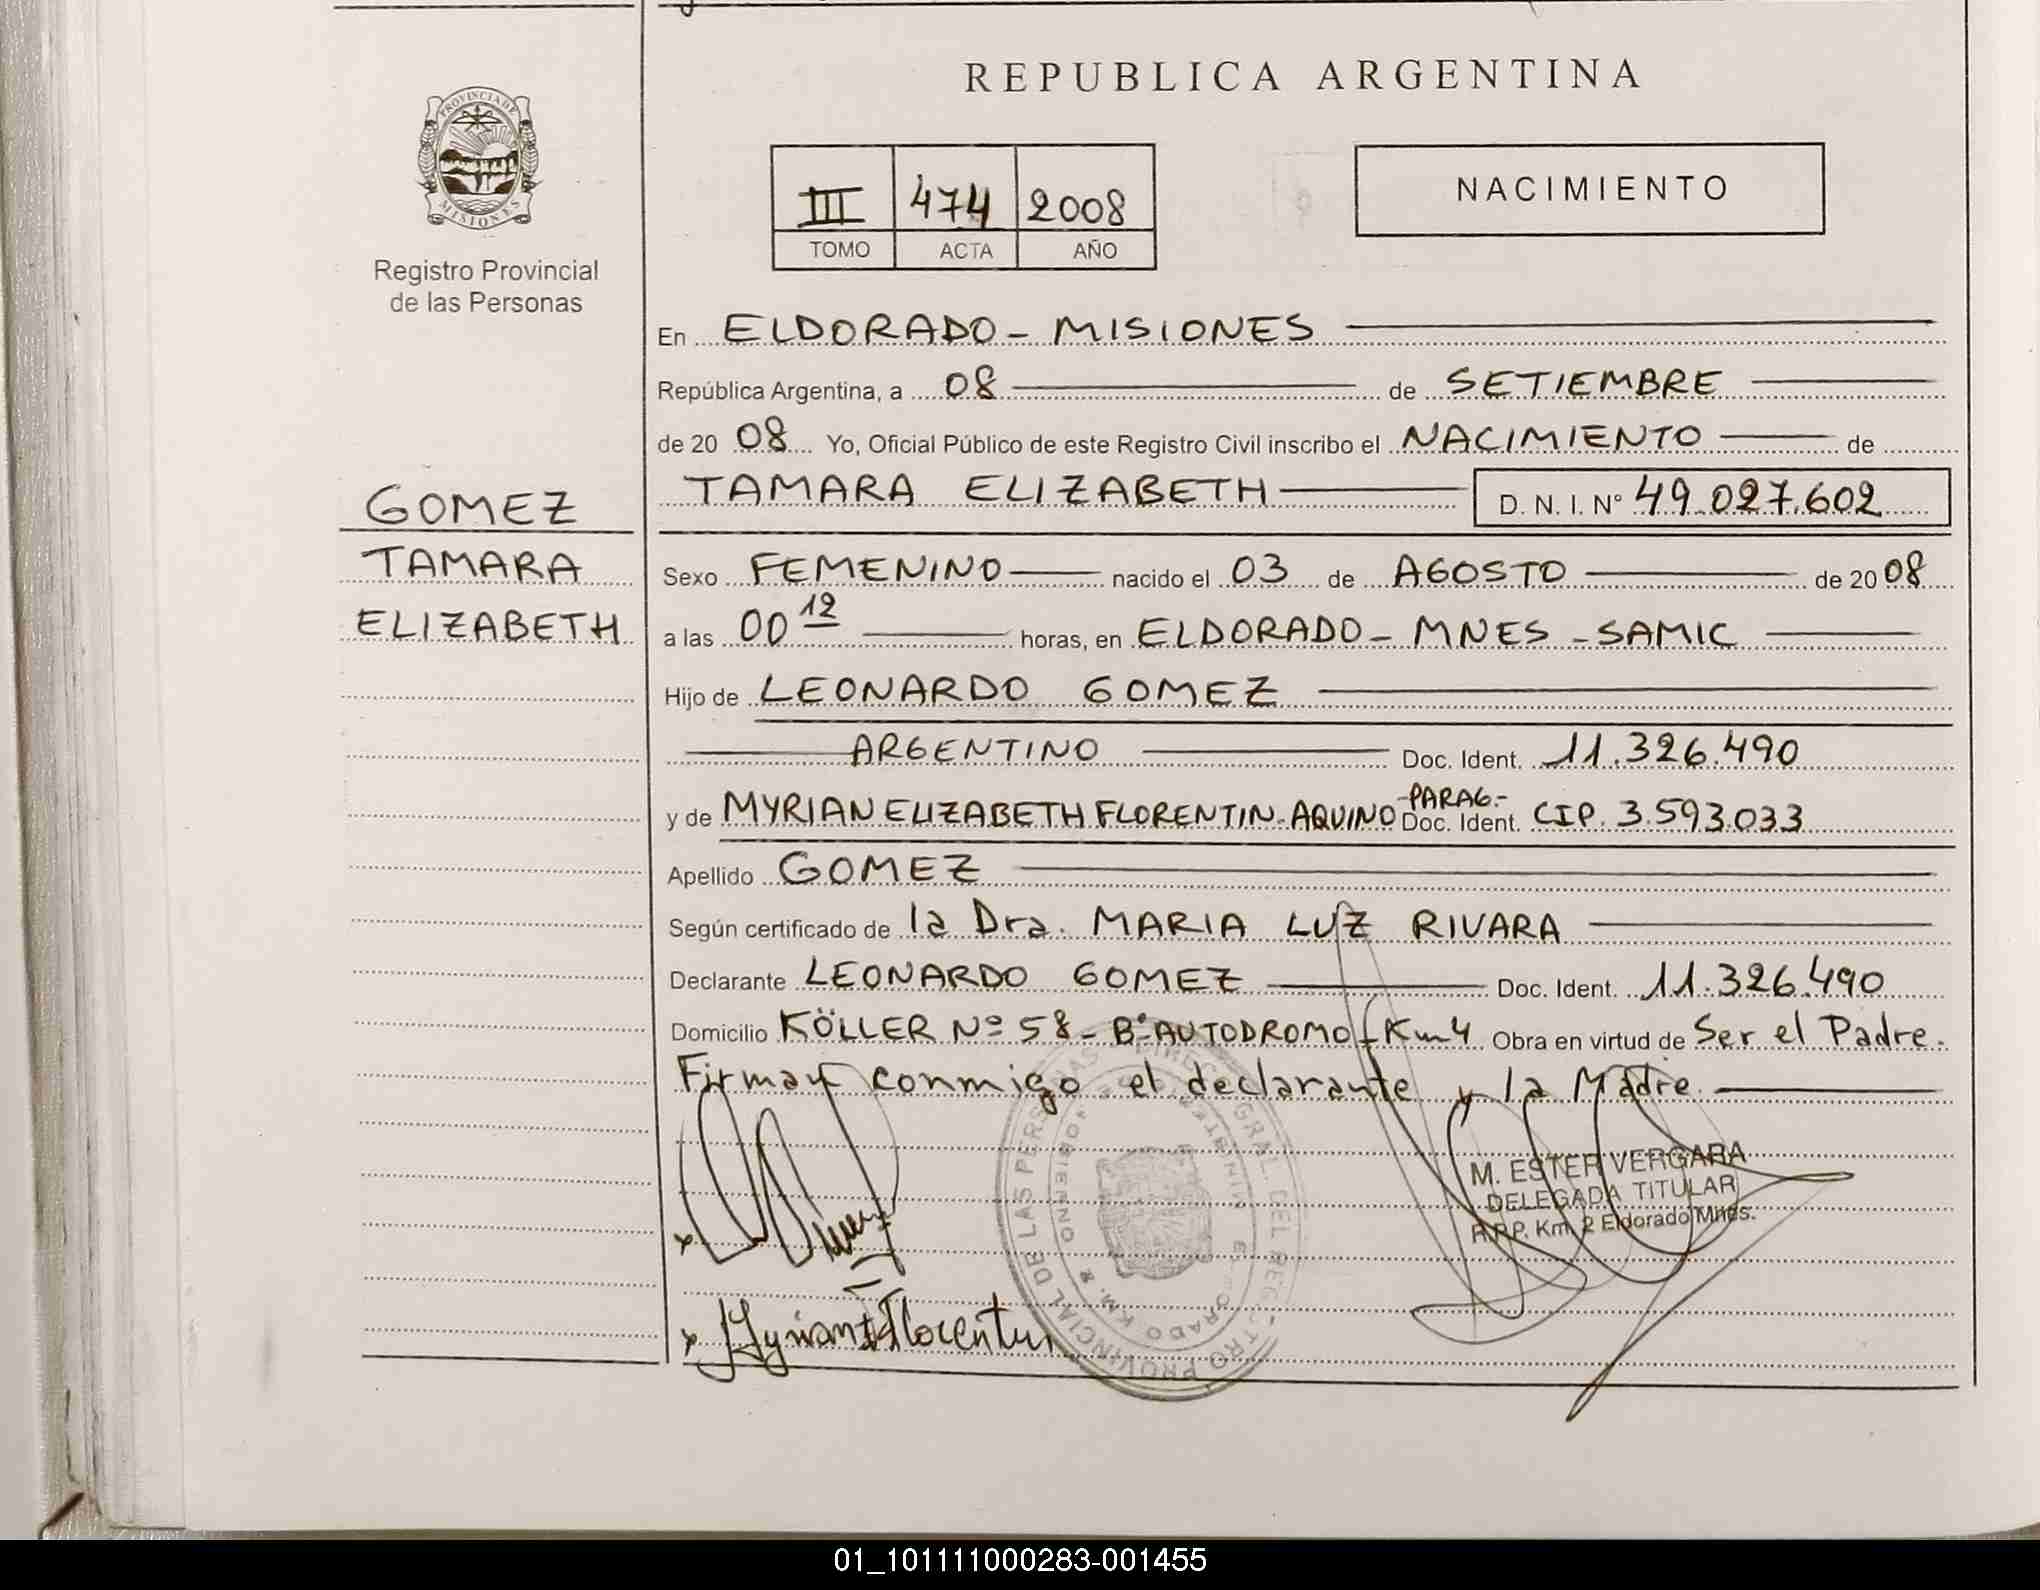 REPUBLICA ARGENTINA
PROVINCIA DE
MISIONES
Registro Provincial
de las Personas
III 474 2008
TOMO ACTA AÑO
NACIMIENTO
En ELDORADO - MISIONES
República Argentina, a 08 de SETIEMBRE
de 20 08 Yo, Oficial Público de este Registro Civil inscribo el NACIMIENTO de
TAMARA ELIZABETH D. N. I. Nº 49.027.602
GOMEZ
TAMARA
ELIZABETH
Sexo FEMENINO nacido el 03 de AGOSTO de 20 08
a las 00 12 horas, en ELDORADO - MNES - SAMIC
Hijo de LEONARDO GOMEZ
ARGENTINO Doc. Ident. 11.326.490
y de MYRIAN ELIZABETH FLORENTIN - AQUINO -PARAG.- Doc. Ident. CIP. 3.593.033
Apellido GOMEZ
Según certificado de la Dra. MARIA LUZ RIVARA
Declarante LEONARDO GOMEZ Doc. Ident. 11.326.490
Domicilio KÖLLER Nº 58 - Bº AUTODROMO - Km 4 Obra en virtud de Ser el Padre.
Firman conmigo el declarante y la Madre.
M. ESTER VERGARA
DELEGADA TITULAR
R.P.P. Km. 2 Eldorado Mnes.
x
x Myrian Florentin
01_101111000283-001455